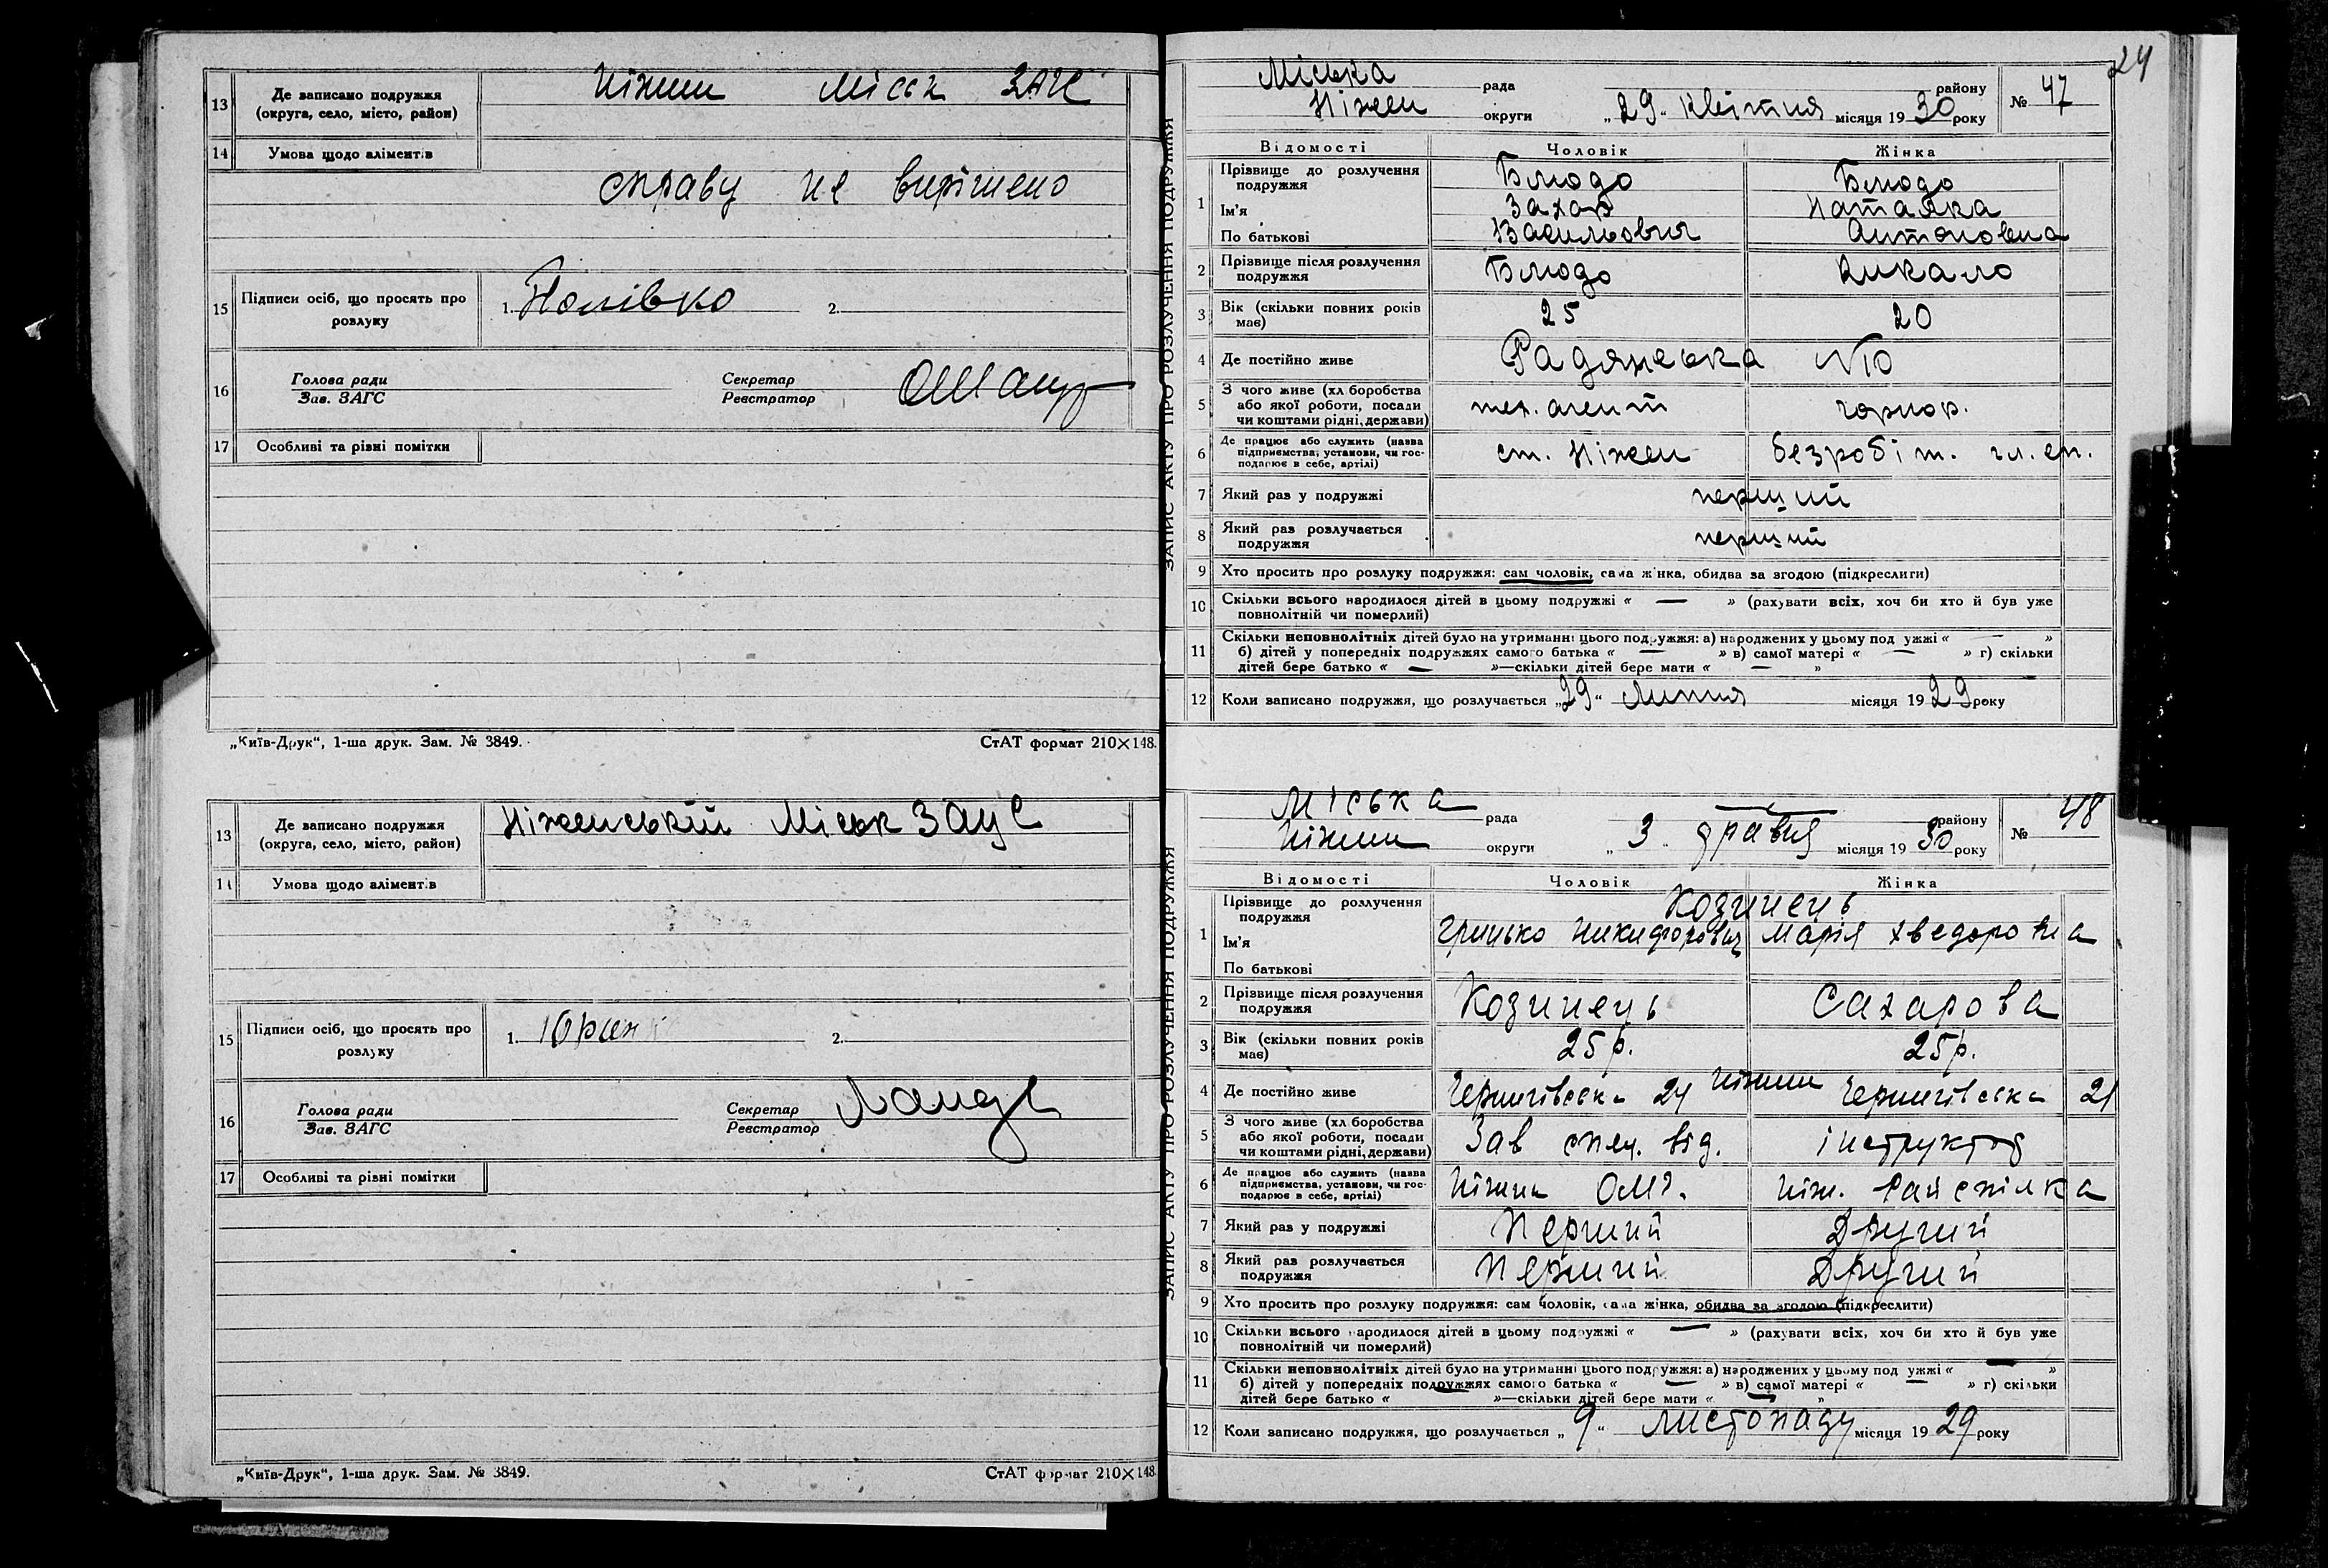 13 Де записано подружжя
(округа, село, місто, район)
Ніжин Міськ ЗАГС
14 Умова щодо аліментів
справу не вирішено
15 Підписи осіб, що просять про
розлуку
1. 2.
16 Голова ради
Зав. ЗАГС
Секретар
Реєстратор
17 Особливі та різні помітки
„Київ-Друк“, 1-ша друк. Зам. № 3849.
СтАТ формат 210×148.
13 Де записано подружжя
(округа, село, місто, район)
Ніженський Міськ ЗАГС
14 Умова щодо аліментів
15 Підписи осіб, що просять про
розлуку
1. 2.
16 Голова ради
Зав. ЗАГС
Секретар
Реєстратор
17 Особливі та різні помітки
„Київ-Друк“, 1-ша друк. Зам. № 3849.
СтАТ формат 210×148.
24
ЗАПИС АКТУ ПРО РОЗЛУЧЕННЯ ПОДРУЖЖЯ
Міська рада району
Ніжен округи „29“ квітня місяця 1930 року № 47
Відомості Чоловік Жінка
1 Прізвище до розлучення
подружжя Блюдо Блюдо
Ім'я Захар Наталка
По батькові Васильович Антоновна
2 Прізвище після розлучення
подружжя Блюдо Кикало
3 Вік (скільки повних років
має) 25 20
4 Де постійно живе Радянська №10
5 З чого живе (хл боробства
або якої роботи, посади
чи коштами рідні, держави)
тех. агент чорнор.
6 Де працює або служить (назва
підприємства, установи, чи гос-
подарює в себе, артілі)
ст. Ніжен безробіт. чл. сп.
7 Який раз у подружжі перший
8 Який раз розлучається
подружжя перший
9 Хто просить про розлуку подружжя: сам чоловік, сама жінка, обидва за згодою (підкреслити)
10 Скільки всього народилося дітей в цьому подружжі « — » (рахувати всіх, хоч би хто й був уже
повнолітній чи померлий)
11 Скільки неповнолітніх дітей було на утриманні цього подружжя: а) народжених у цьому подружжі « — »
б) дітей у попередніх подружжях самого батька « — » в) самої матері « — » г) скільки
дітей бере батько « — »—скільки дітей бере мати « — »
12 Коли записано подружжя, що розлучається „29“ Липня місяця 1929 року
ЗАПИС АКТУ ПРО РОЗЛУЧЕННЯ ПОДРУЖЖЯ
Міська рада — району
Ніжин округи „3“ травня місяця 1930 року № 48
Відомості Чоловік Жінка
1 Прізвище до розлучення
подружжя Козинець
Ім'я Грицько Никифорович Марія Хведоровна
По батькові
2 Прізвище після розлучення
подружжя Козинець Сахарова
3 Вік (скільки повних років
має) 25 р. 25 р.
4 Де постійно живе Чернигівська 21 Ніжин Чернигівська 21
5 З чого живе (хл боробства
або якої роботи, посади
чи коштами рідні, держави)
Зав спец. від. інструктор
6 Де працює або служить (назва
підприємства, установи, чи гос-
подарює в себе, артілі)
Ніжин Ніж. Райспілка
7 Який раз у подружжі Перший Другий
8 Який раз розлучається
подружжя Перший Другий
9 Хто просить про розлуку подружжя: сам чоловік, сама жінка, обидва за згодою (підкреслити)
10 Скільки всього народилося дітей в цьому подружжі « — » (рахувати всіх, хоч би хто й був уже
повнолітній чи померлий)
11 Скільки неповнолітніх дітей було на утриманні цього подружжя: а) народжених у цьому подружжі « — »
б) дітей у попередніх подружжях самого батька « — » в) самої матері « — » г) скільки
дітей бере батько « »—скільки дітей бере мати « — »
12 Коли записано подружжя, що розлучається „9“ листопаду місяця 1929 року